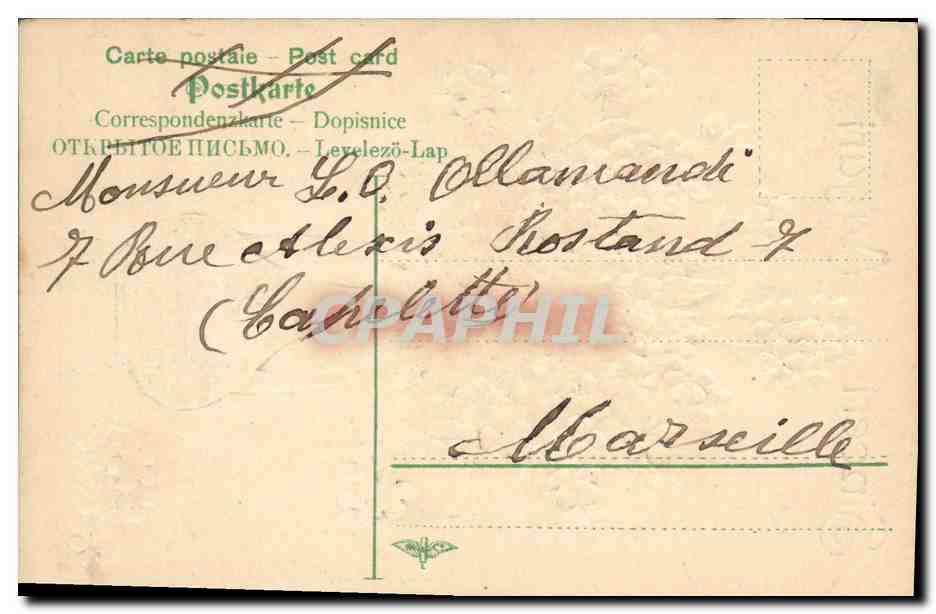 Carte postale – Post card
Postkarte
Correspondenzkarte – Dopisnice
ОТКРЫТОЕ ПИСЬМО. – Levelező-Lap
Monsieur L. O. Allamandi
7 Rue Alexis Rostand 7
(Capelette)
CPAPHIL
Marseille